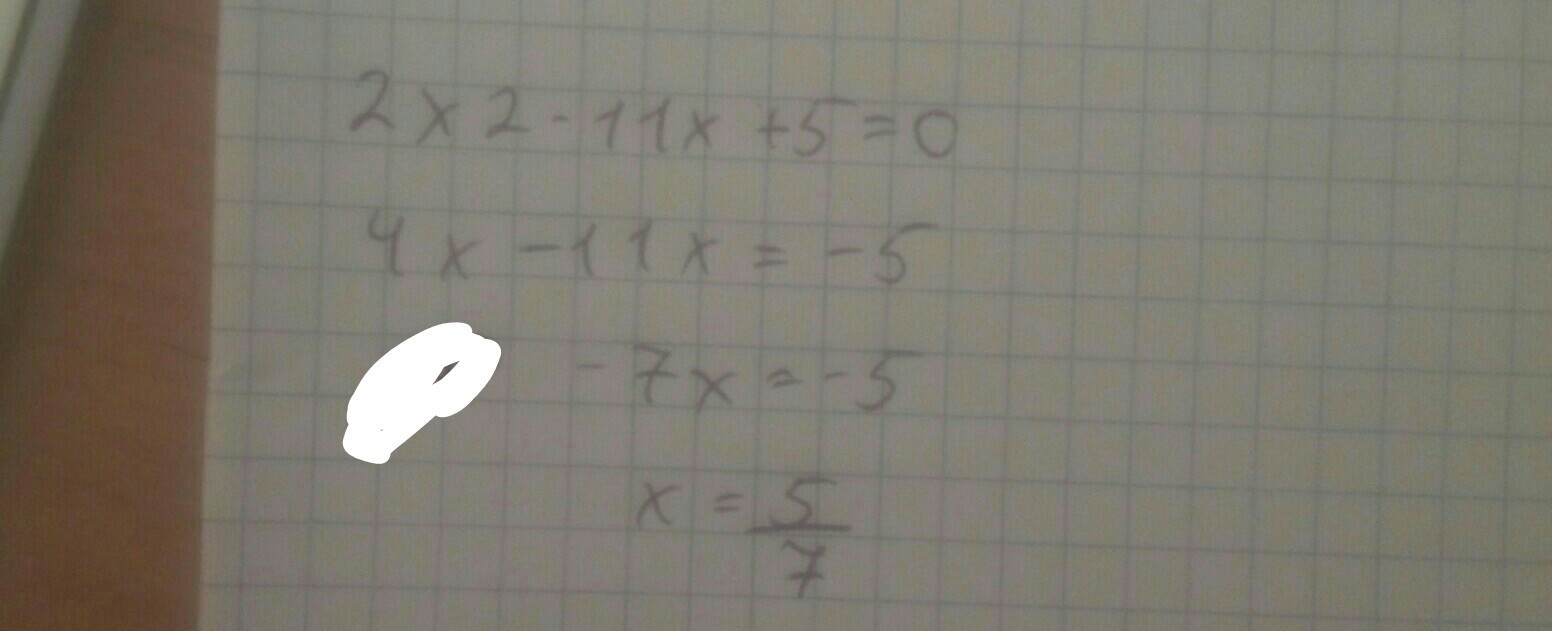 2x2-11x+5=0
4x-11x=-5
-7x=-5
x=5/7